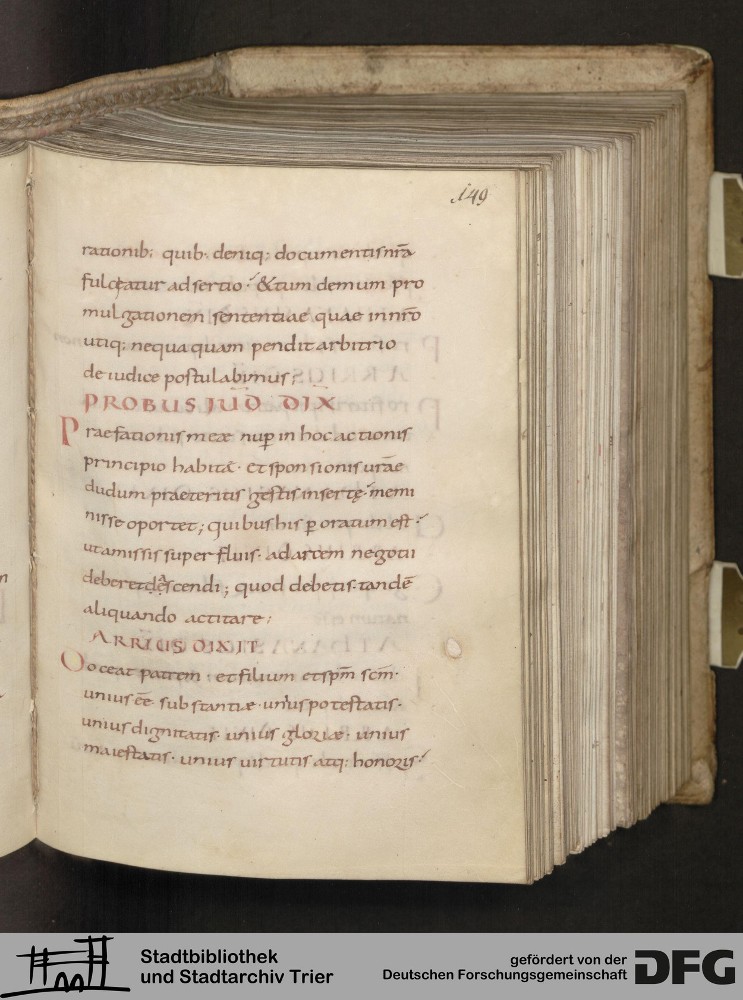 149
rationib; quib; deniq; documentis nr̄a
fulceatur adsertio ⁊ & tum demum pro
mulgationem sententiae quae in nr̄o
utiq; nequaquam pendit arbitrio
de iudice postulabimus;
PROBUS IUD DIX
Praefationis meae nup̄ in hoc actionis
principio habitā · et sponsionis urāe
dudum praeteritis gestis insertę memi
nisse oportet; quibus his p̄oratum est
ut amissis superfluis · ad artem negotii
deberet descendi; quod debetis tandē
aliquando actitare;
ARRIUS DIXIT
Doceat patrem · et filium et sp̄m scm̄ ·
unius ēe substantiae · unius potestatis ·
unius dignitatis · unius gloriae · unius
maiestatis · unius uirtutis atq; honoris
Stadtbibliothek
und Stadtarchiv Trier
gefördert von der
Deutschen Forschungsgemeinschaft
DFG